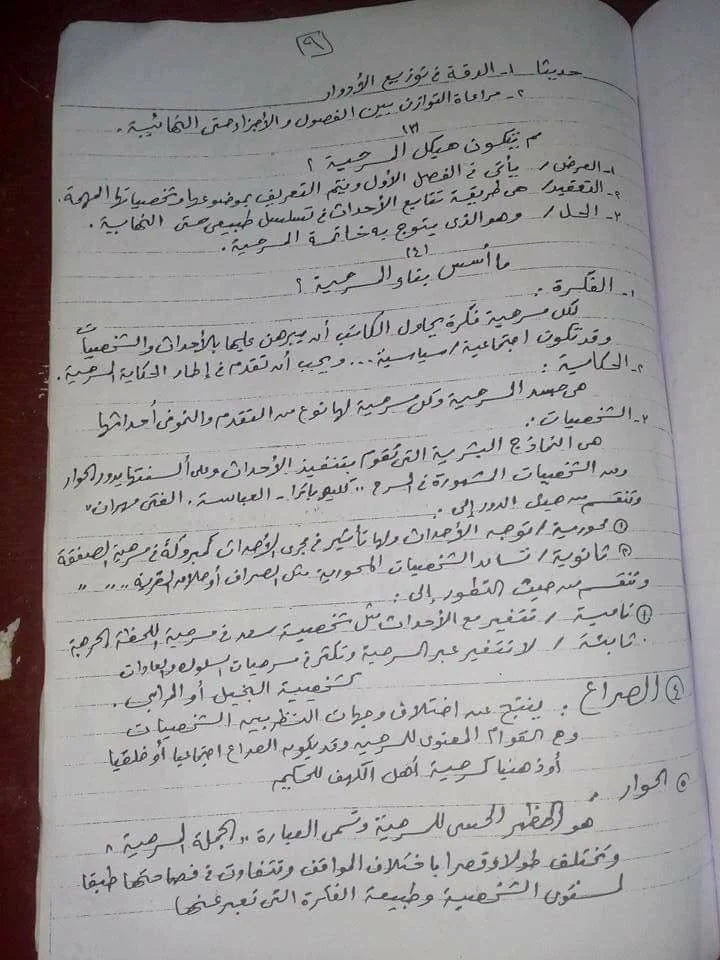 ٩
حديثا ١- الدقة في توزيع الأدوار
٢- مراعاة التوازن بين الفصول والأجزاء حتى النهائية.
(٣)
مم يتكون هيكل المسرحية ؟
١- العرض / يأتى في الفصل الأول ويتم التعريف بموضوعها وشخصياتها المهمة.
٢- التعقيد / هى طريقة تتابع الأحداث في تسلسل طبيعى حتى النهاية.
٣- الحل / وهو الذى يتوج به خاتمة المسرحية.
(٤)
ما أسس بناء المسرحية ؟
١- الفكرة :
لكل مسرحية فكرة يحاول الكاتب أن يبرهن عليها بالأحداث والشخصيات
وقد تكون اجتماعية / سياسية ... ويجب أن تقدم في إطار الحكاية المسرحية.
٢- الحكاية :
هى جسد المسرحية وكل مسرحية لها نوع من التقدم والنمو في أحداثها
٣- الشخصيات :
هى النماذج البشرية التى تقوم بتنفيذ الأحداث وعلى ألسنتها يدور الحوار
ومن الشخصيات المشهورة في المسرح ,, كليوباترا - العباسة . الفتى مهران "
وتنقسم من حيث الدور إلى :
١ محورية / توجه الأحداث ولها تأثير في مجرى الأحداث كمبروكة في مسرحية الصفقة
٢ ثانوية / تساند الشخصيات المحورية مثل الصراف أو حلاق القرية ,, ,, ,,
وتنقسم من حيث التطور إلى :
١ نامية / تتغير مع الأحداث مثل شخصية سعد في مسرحية اللحظة الحرجة
. ثابتة / لا تتغير عبر المسرحية وتكثر في مسرحيات السلوك والعادات
كشخصية البخيل أو المرابى .
٤ الصراع : ينتج عن اختلاف وجهات النظر بين الشخصيات
وهو القوام المعنوى للمسرحية وقد يكون الصراع اجتماعيا أو خلقيا
أو ذهنيا كمسرحية أهل الكهف للحكيم
٥ الحوار :
هو المظهر الحسى للمسرحية وتسمى العبارة ,, الجملة المسرحية "
وتختلف طولا وقصرا باختلاف المواقف وتتفاوت في فصاحتها طبقا
لمستوى الشخصية وطبيعة الفكرة التى تعبر عنها